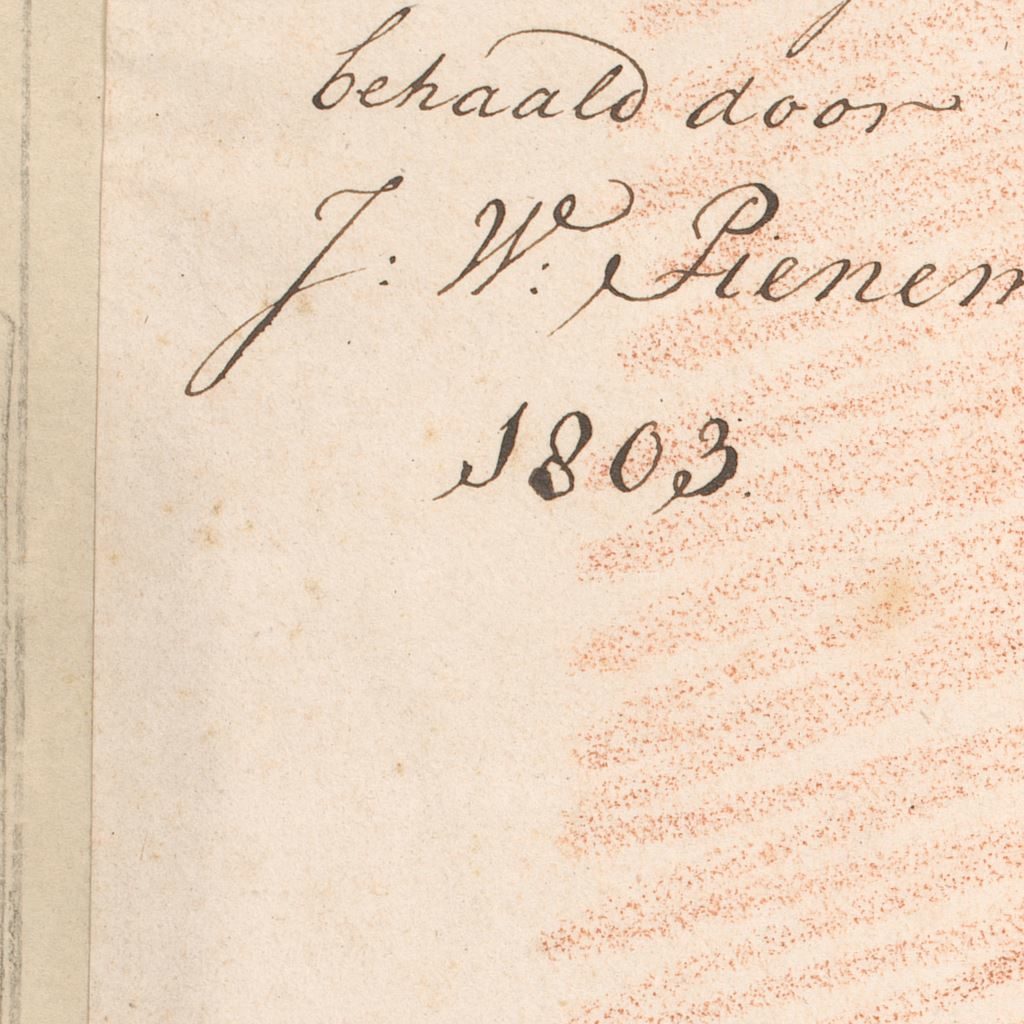 behaald door
J: W: Pienem
1803.